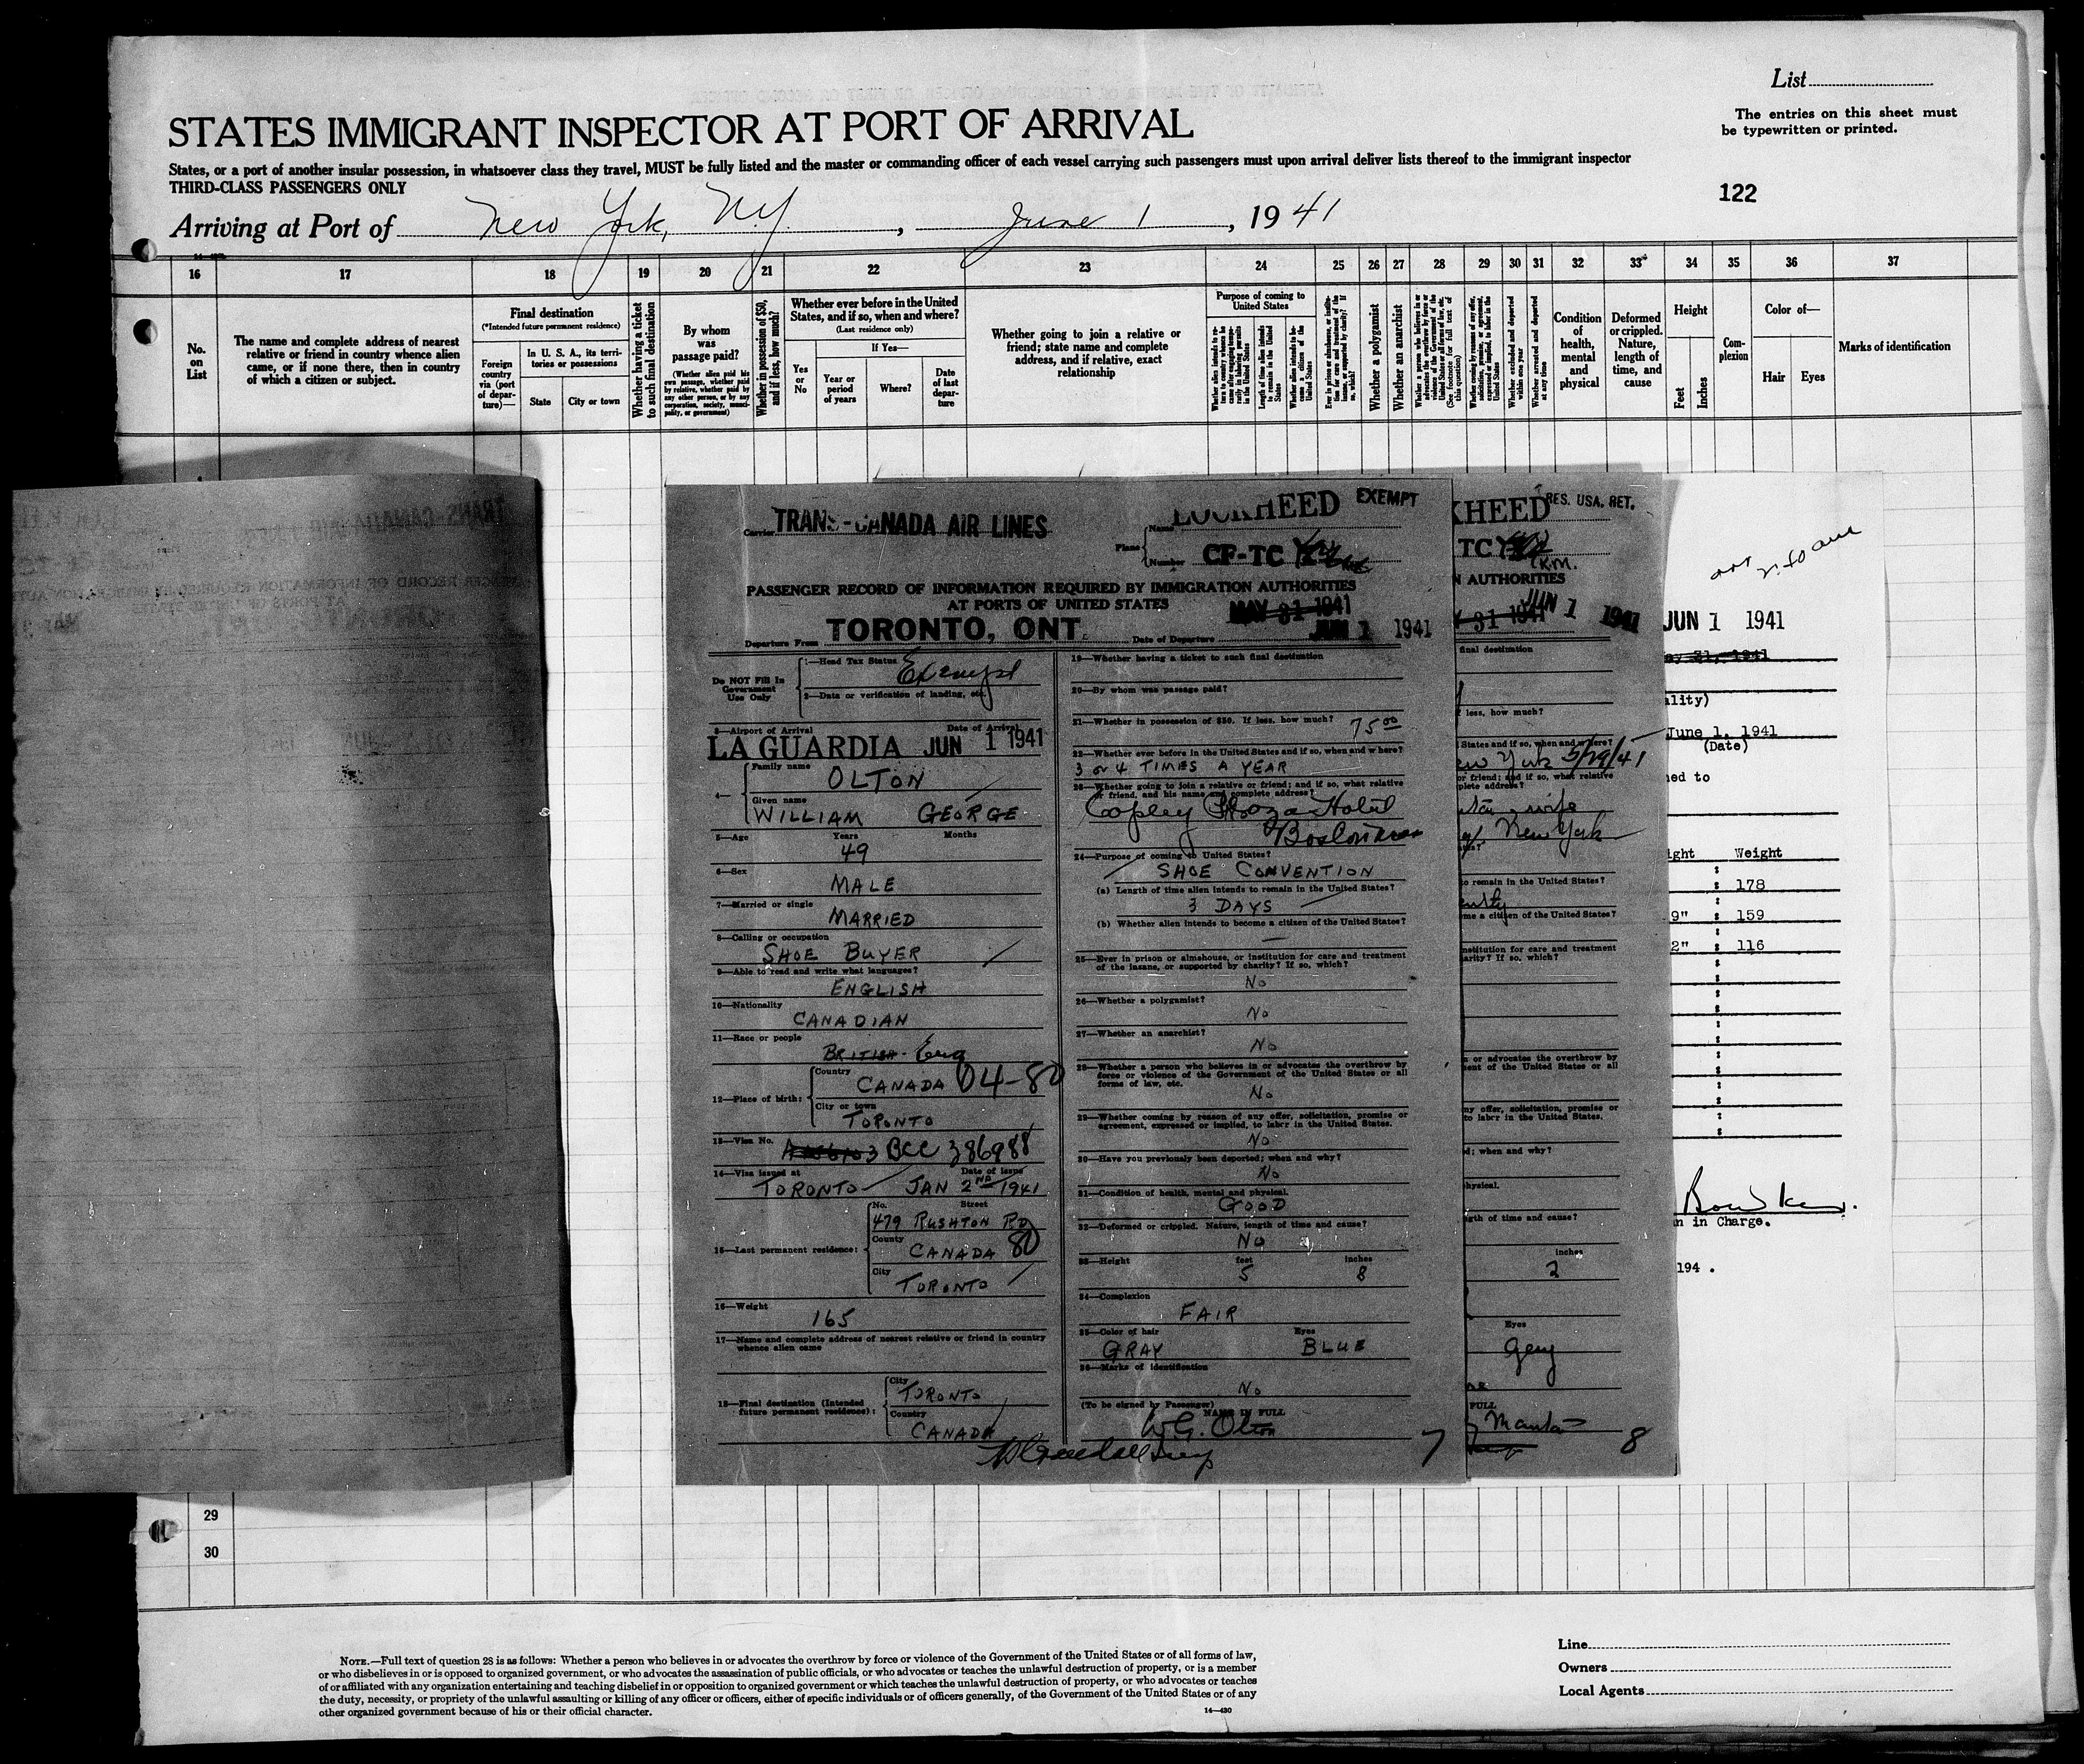 List
The entries on this sheet must
be typewritten or printed.
STATES IMMIGRANT INSPECTOR AT PORT OF ARRIVAL
States, or a port of another insular possession, in whatsoever class they travel, MUST be fully listed and the master or commanding officer of each vessel carrying such passengers must upon arrival deliver lists thereof to the immigrant inspector
THIRD-CLASS PASSENGERS ONLY
122
Arriving at Port of New York, N.Y. , June 1 , 1941
16 17 18 19 20 21 22 23 24 25 26 27 28 29 30 31 32 33* 34 35 36 37
No.
on
List
The name and complete address of nearest
relative or friend in country whence alien
came, or if none there, then in country
of which a citizen or subject.
Final destination
(*Intended future permanent residence)
Foreign
country
via (port
of depar-
ture)—
In U. S. A., its terri-
tories or possessions
State City or town
Whether having a ticket
to such final destination
By whom
was
passage paid?
(Whether alien paid his
own passage, whether paid
by relative, whether paid by
any other person, or by any
corporation, society, munici-
pality, or government)
Whether in possession of $50,
and if less, how much?
Whether ever before in the United
States, and if so, when and where?
(Last residence only)
Yes
or
No
If Yes—
Year or
period
of years
Where?
Date
of last
depar-
ture
Whether going to join a relative or
friend; state name and complete
address, and if relative, exact
relationship
Purpose of coming to
United States
Length of time alien intends
to remain in the United
States
Whether a polygamist
Whether an anarchist
Whether excluded and deported
within one year
Whether arrested and deported
at any time
Condition
of
health,
mental
and
physical
Deformed
or crippled.
Nature,
length of
time, and
cause
Height
Feet
Inches
Com-
plexion
Color of—
Hair Eyes
Marks of identification
Carrier TRANS-CANADA AIR LINES
Plane Name LOCKHEED EXEMPT
Number CF-TC
PASSENGER RECORD OF INFORMATION REQUIRED BY IMMIGRATION AUTHORITIES
AT PORTS OF UNITED STATES
MAY 31 1941
Departure From TORONTO, ONT. Date of Departure JUN 1 1941
Do NOT Fill In
Government
Use Only
1—Head Tax Status Exempt
2—Data or verification of landing, etc.
3—Airport of Arrival Date of Arrival
LA GUARDIA JUN 1 1941
4— Family name
OLTON
Given name
WILLIAM GEORGE
5—Age Years Months
49
6—Sex
MALE
7—Married or single
MARRIED
8—Calling or occupation
SHOE BUYER
9—Able to read and write what languages?
ENGLISH
10—Nationality
CANADIAN
11—Race or people
BRITISH - Eng
12—Place of birth: Country
CANADA 04-80
City or town
TORONTO
13—Visa No.
BCC 386988
14—Visa issued at Date of Issue
TORONTO JAN 2ND 1941
15—Last permanent residence: No. Street
479 RUSHTON RD
County
CANADA 80
City
TORONTO
16—Weight
165
17—Name and complete address of nearest relative or friend in country
whence alien came
18—Final destination (Intended
future permanent residence):
City
TORONTO
Country
CANADA
19—Whether having a ticket to such final destination
20—By whom was passage paid?
21—Whether in possession of $50. If less, how much? 75 00
22—Whether ever before in the United States and if so, when and where?
3 or 4 TIMES A YEAR
23—Whether going to join a relative or friend; and if so, what relative
or friend, and his name and complete address?
Copley Plaza Hotel
Boston Mass
24—Purpose of coming to United States?
SHOE CONVENTION
(a) Length of time alien intends to remain in the United States?
3 DAYS
(b) Whether alien intends to become a citizen of the United States?
—
25—Ever in prison or almshouse, or institution for care and treatment
of the insane, or supported by charity? If so, which?
No
26—Whether a polygamist?
No
27—Whether an anarchist?
No
28—Whether a person who believes in or advocates the overthrow by
force or violence of the Government of the United States or all
forms of law, etc.
No
29—Whether coming by reason of any offer, solicitation, promise or
agreement, expressed or implied, to labor in the United States.
No
30—Have you previously been deported; when and why?
No
31—Condition of health, mental and physical.
GOOD
32—Deformed or crippled. Nature, length of time and cause?
No
33—Height feet inches
5 8
34—Complexion
FAIR
35—Color of hair Eyes
GRAY BLUE
36—Marks of identification
No
(To be signed by Passenger)
NAME IN FULL
W.G. Olton
7
KHEED RES. USA. RET.
TC
K.M.
N AUTHORITIES
31 1941 JUN 1 1941
final destination
less, how much?
States and if so, when and where?
ew York 5/29/41
or friend; and if so, what relative
plete address?
wife
New York
to remain in the United States?
me a citizen of the United States?
institution for care and treatment
arity? If so, which?
n or advocates the overthrow by
ment of the United States or all
ny offer, solicitation, promise or
to labor in the United States.
d; when and why?
hysical.
ngth of time and cause?
inches
2
Eyes
Grey
FULL
8
JUN 1 1941
ay 31, 1941
ality)
June 1, 1941
(Date)
ned to
ight Weight
: 178
9" : 159
2" : 116
n in Charge.
194 .
29
30
NOTE.—Full text of question 28 is as follows: Whether a person who believes in or advocates the overthrow by force or violence of the Government of the United States or of all forms of law,
or who disbelieves in or is opposed to organized government, or who advocates the assassination of public officials, or who advocates or teaches the unlawful destruction of property, or is a member
of or affiliated with any organization entertaining and teaching disbelief in or opposition to organized government or which teaches the unlawful destruction of property, or who advocates or teaches
the duty, necessity, or propriety of the unlawful assaulting or killing of any officer or officers, either of specific individuals or of officers generally, of the Government of the United States or of any
other organized government because of his or their official character.
14—430
Line
Owners
Local Agents